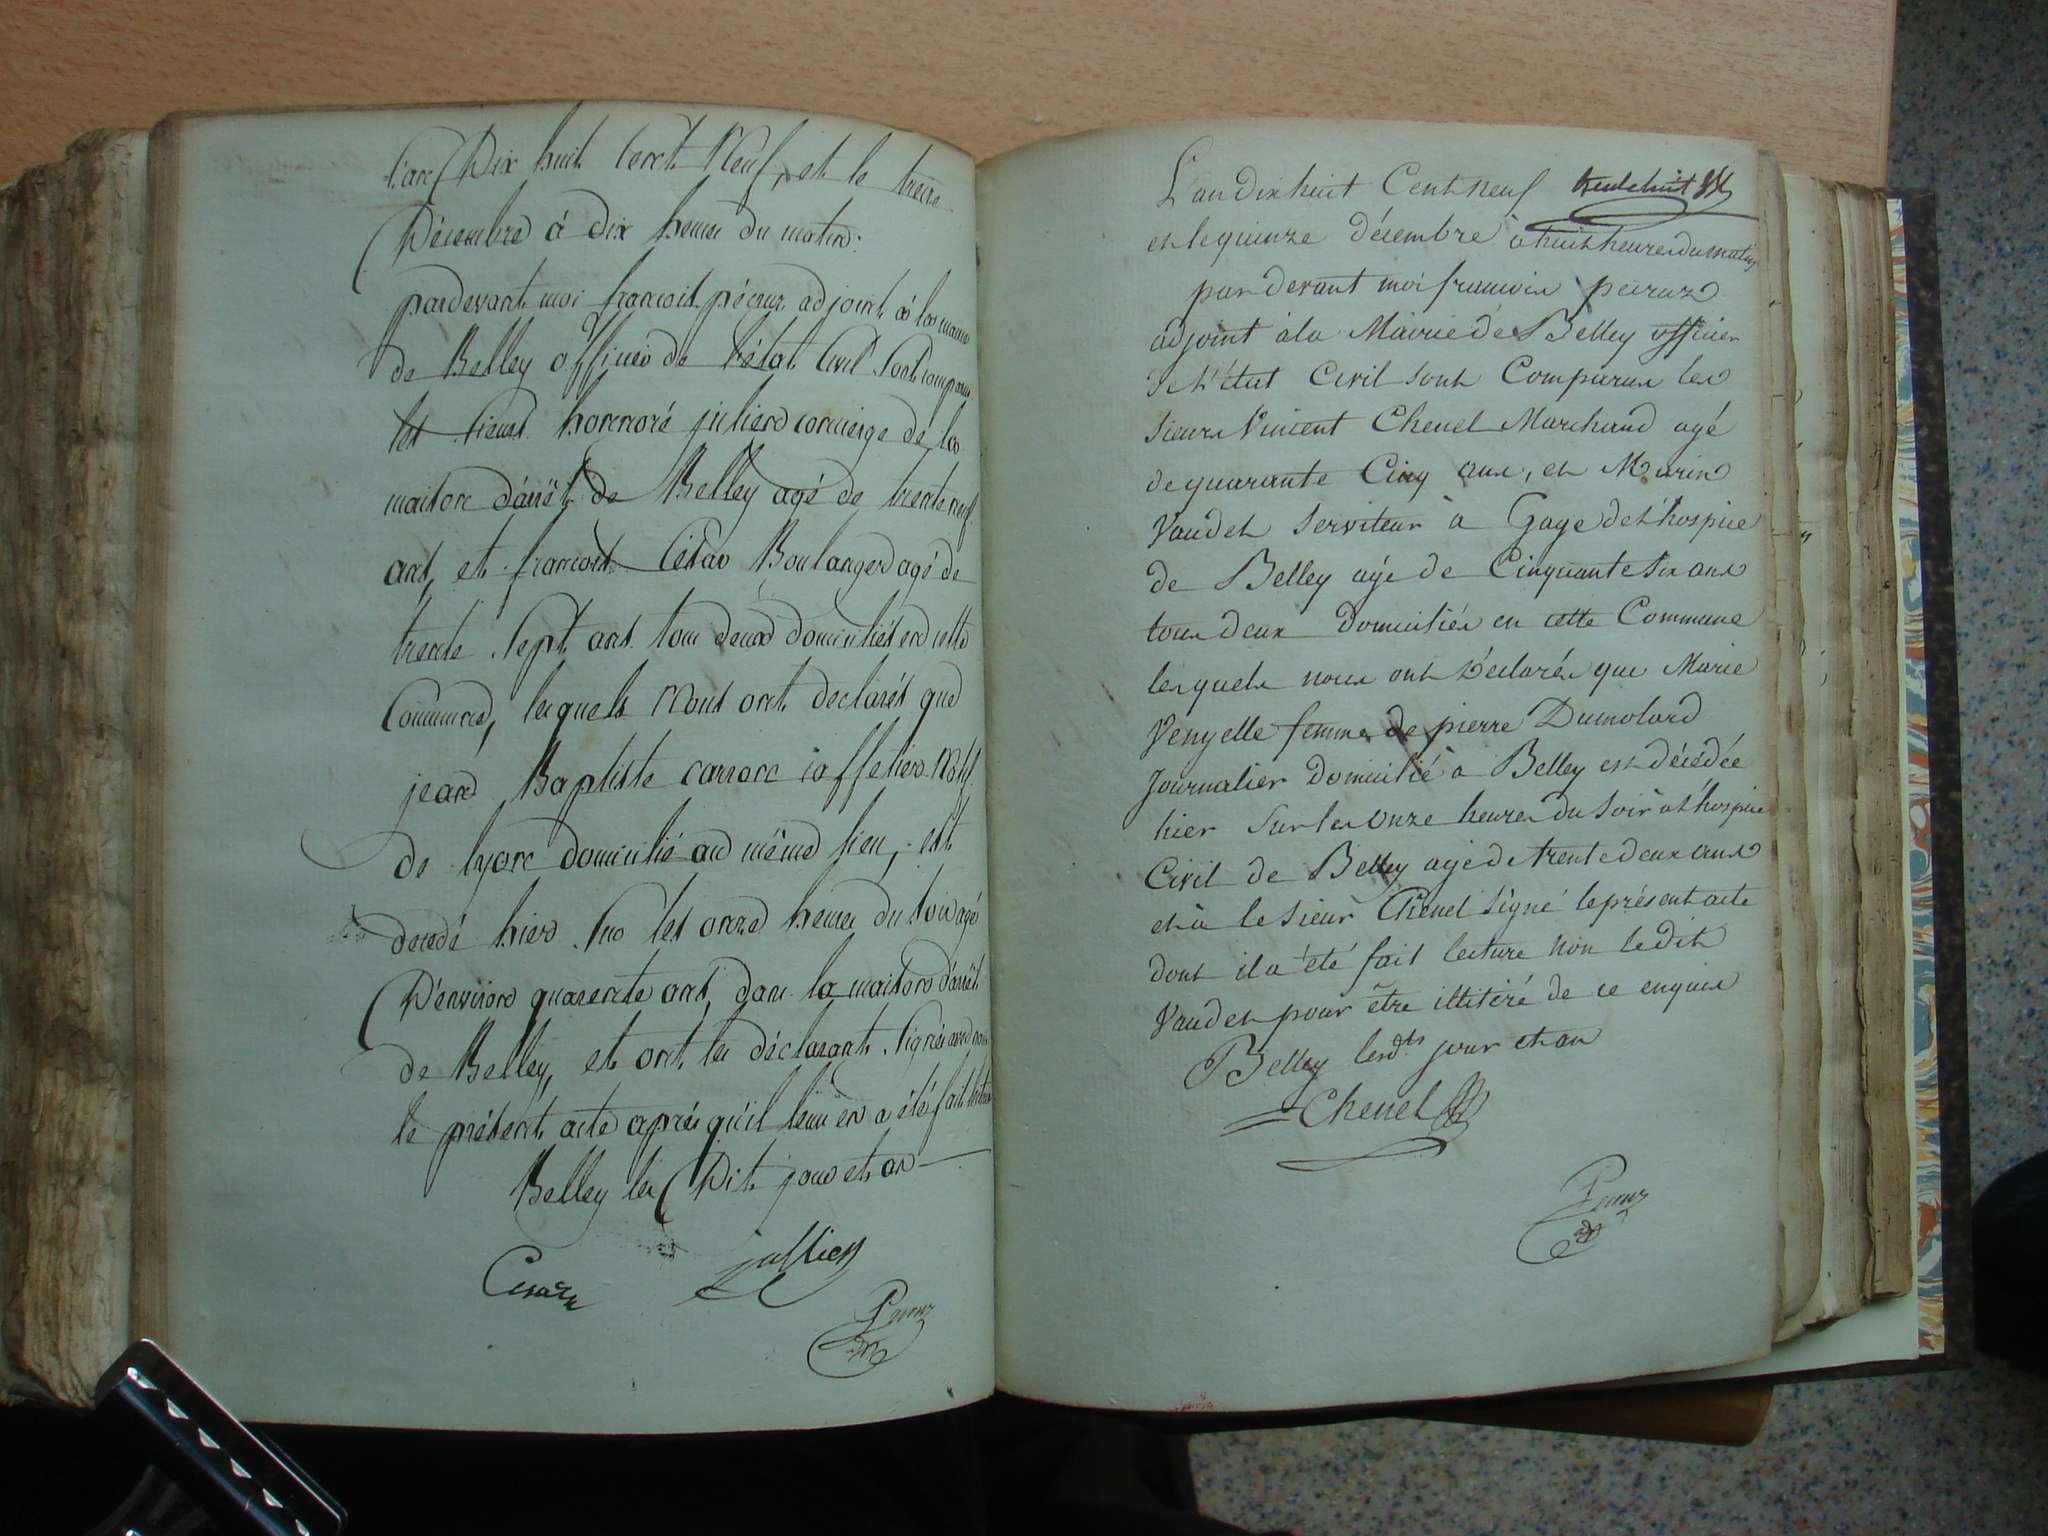 l'an Dix huit Cent Neuf, et le treize
Décembre à dix heures du matin.
pardevant moi françois péceur adjoint à la mairie
de Belley officier de l'état Civil sont comparus
les sieurs honnoré julien concierge de la
maison d'arrêt de Belley agé de trente neuf
ans, et françois César Boulanger agé de
trente sept ans tous deux domiciliés en cette
Commune, lesquels Nous ont declarés que
jean Baptiste caffetier Natif
de lyon domicilié au même lieu, est
decedé hier sur les onze heures du soir agé
D'environ quarente ans, dans la maison d'arrêt
de Belley, et ont les déclarants signés avec nous
le présent acte après qu'il leur en a été fait lecture
Belley les Dits jour et an
jullien
L'an dix huit Cent neuf
et le quinze décembre à huit heures du matin
par devant moi francois
adjoint à la Mairie de Belley officier
de l'état Civil sont Comparus les
sieurs Vincent Chenel Marchand agé
de quarante Cinq ans, et Marin
Vaudet serviteur à Gage de l'hospice
de Belley agé de Cinquante six ans
tous deux domiciliés en cette Commune
lesquels nous ont déclarés que Marie
Venyelle femme de pierre Dumolard
Journalier Domicilié à Belley est décédée
hier sur les onze heures du soir à l'hospice
Civil de Belley agé de trente deux ans
et à le sieur Chenel signé le présent acte
dont il a été fait lecture non le dit
Vaudet pour être illitéré de ce enquis
Belley les dts jour et an
Chenel